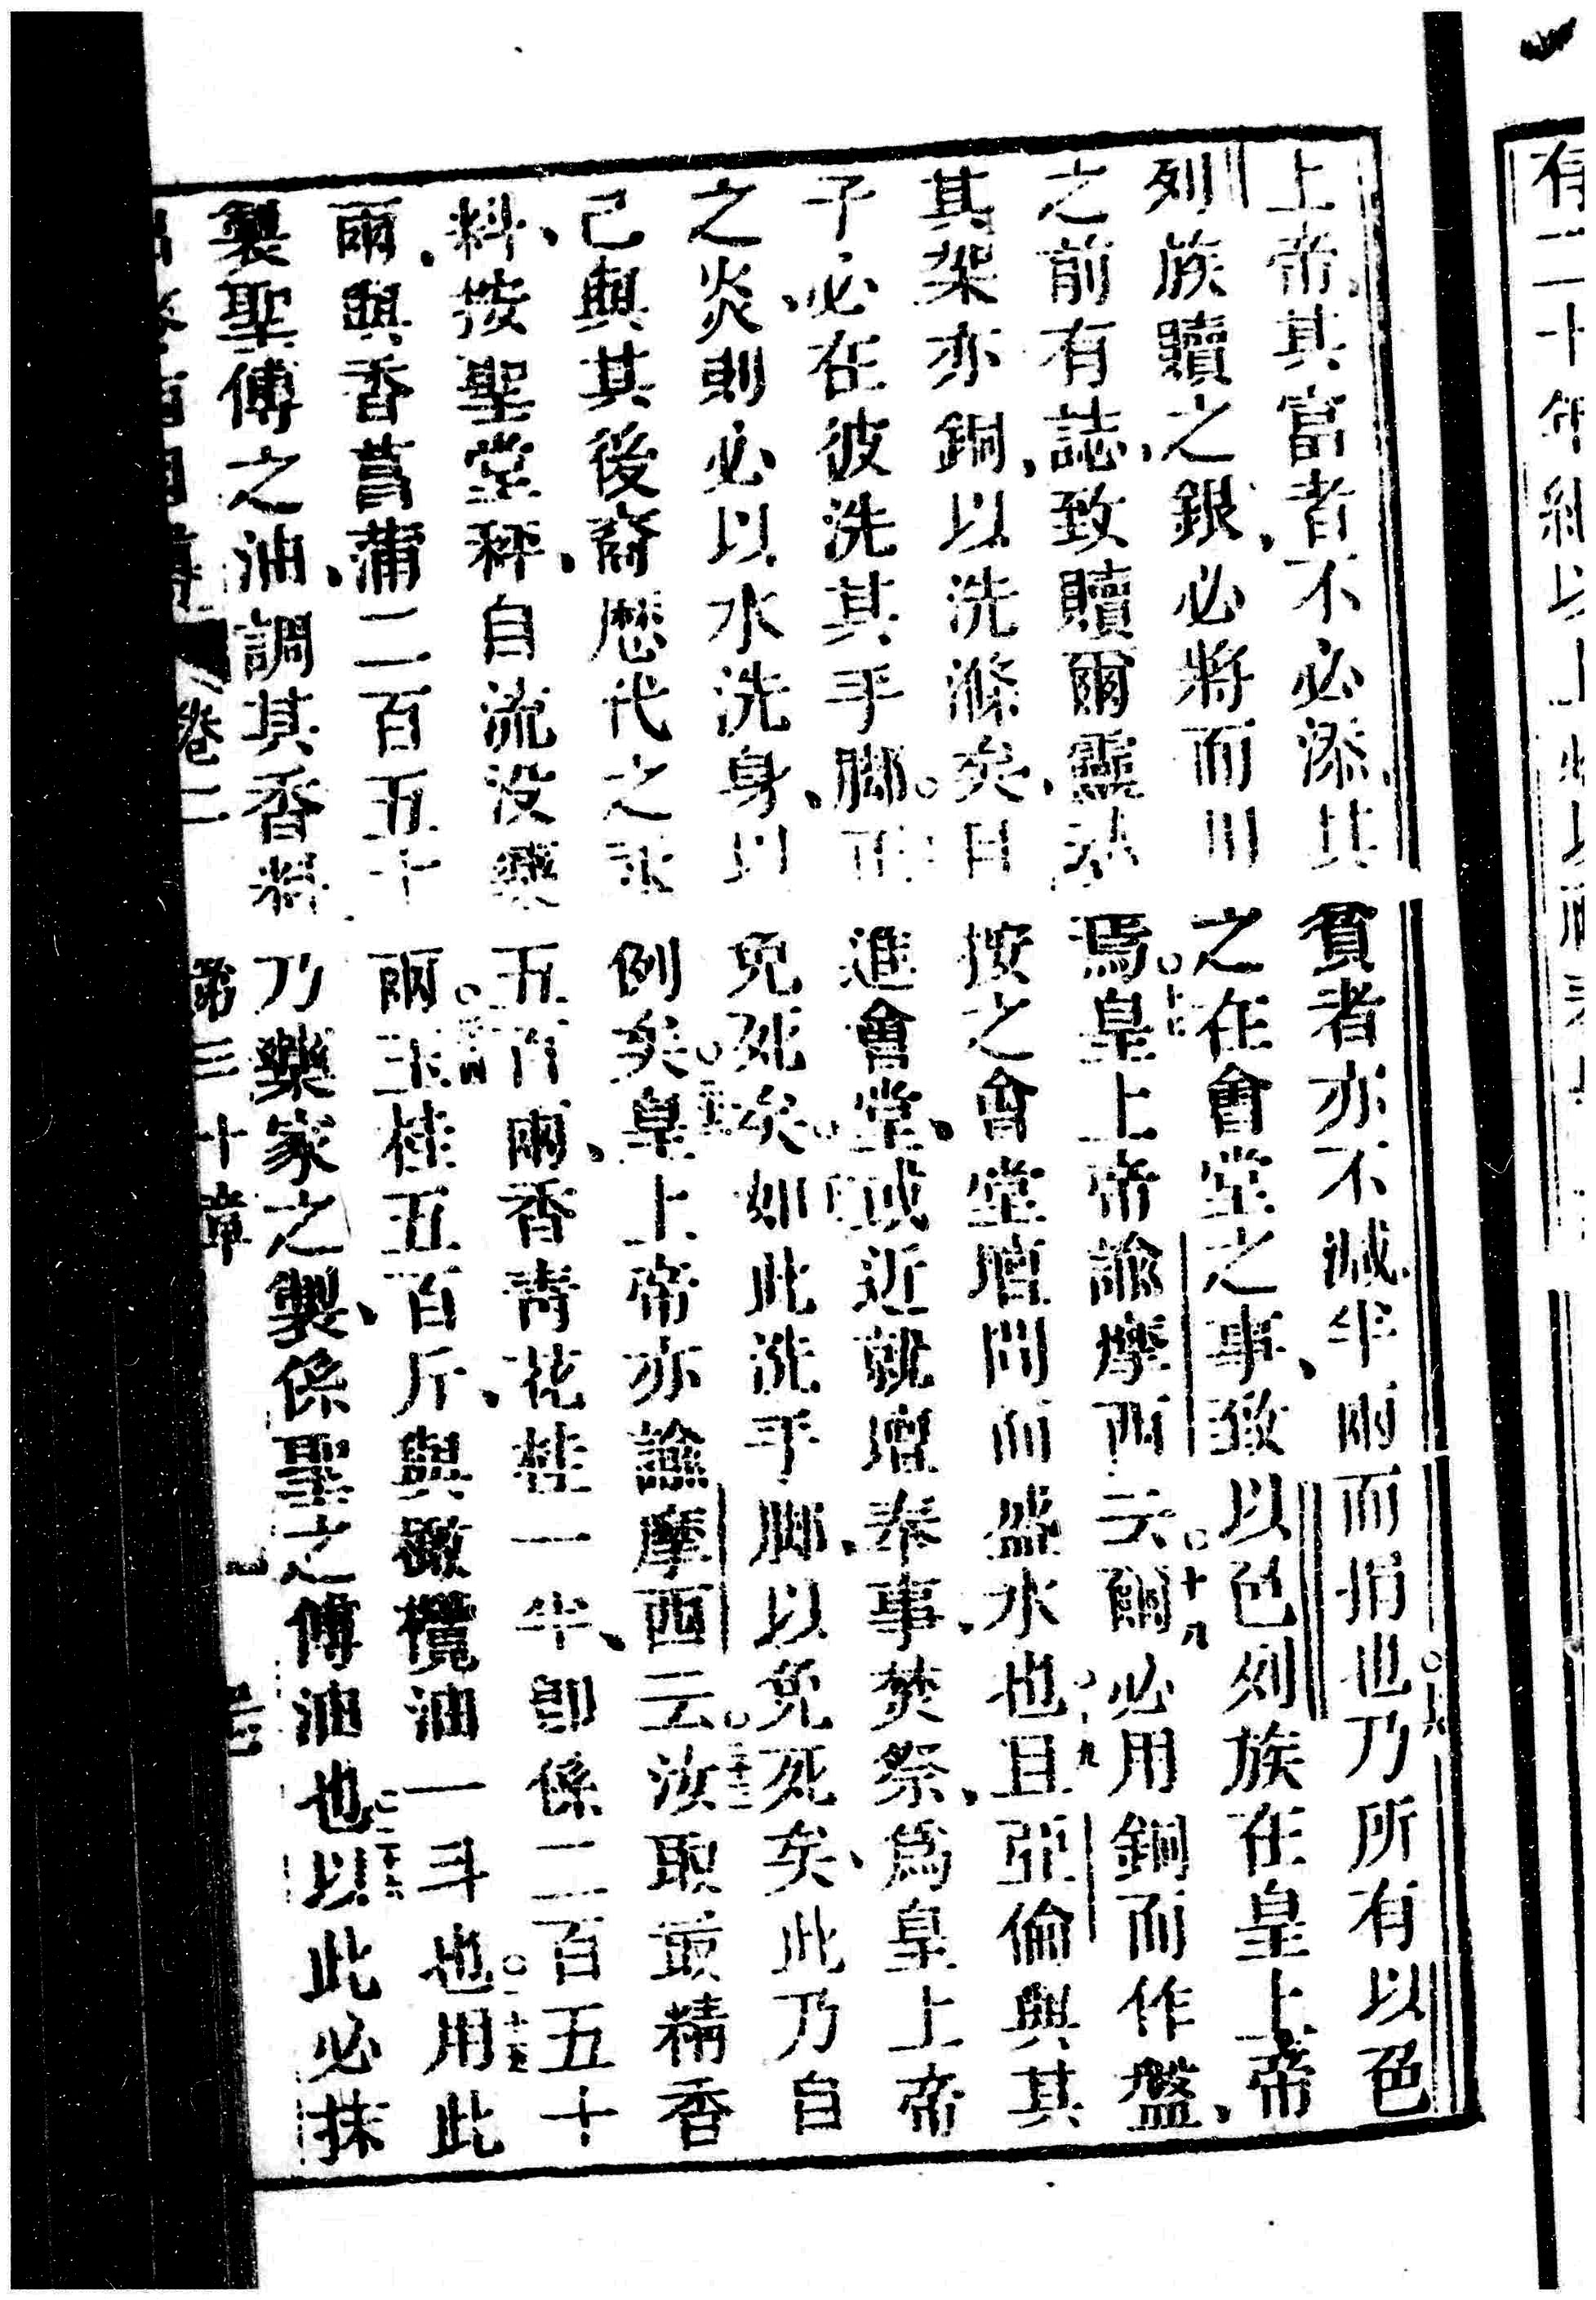 上帝、其富者不必添、其貧者亦不減、半兩而捐也○十六乃所有以色
列族贖之銀、必將而用之在會堂之事、致以色列族在皇上帝
之前有誌、致贖爾靈魂焉。○十七皇上帝諭摩西云。○十八爾必用銅而作盤、
其架亦銅、以洗滌矣、且按之會堂壇間而盛水也○十九且亞倫與其
子、必在彼洗其手脚。○二十而進會堂、或近就壇奉事、焚祭、爲皇上帝
之炎、則必以水洗身、以免死矣。如此洗手脚、以免死矣、此乃自
己與其後裔歷代之永例矣。○二十二皇上帝亦諭摩西云。○二十三汝取最精香
料、按聖堂秤、自流没藥五百兩、香靑花桂一半、卽係二百五十
兩、與香菖蒲二百五十兩。○二十四玉桂五百斤、與橄欖油一斗也○二十五用此
製聖傅之油、調其香料乃藥家之製、係聖之傅油也○二十六以此必抹
卷二 第三十章
有二十年紀以上